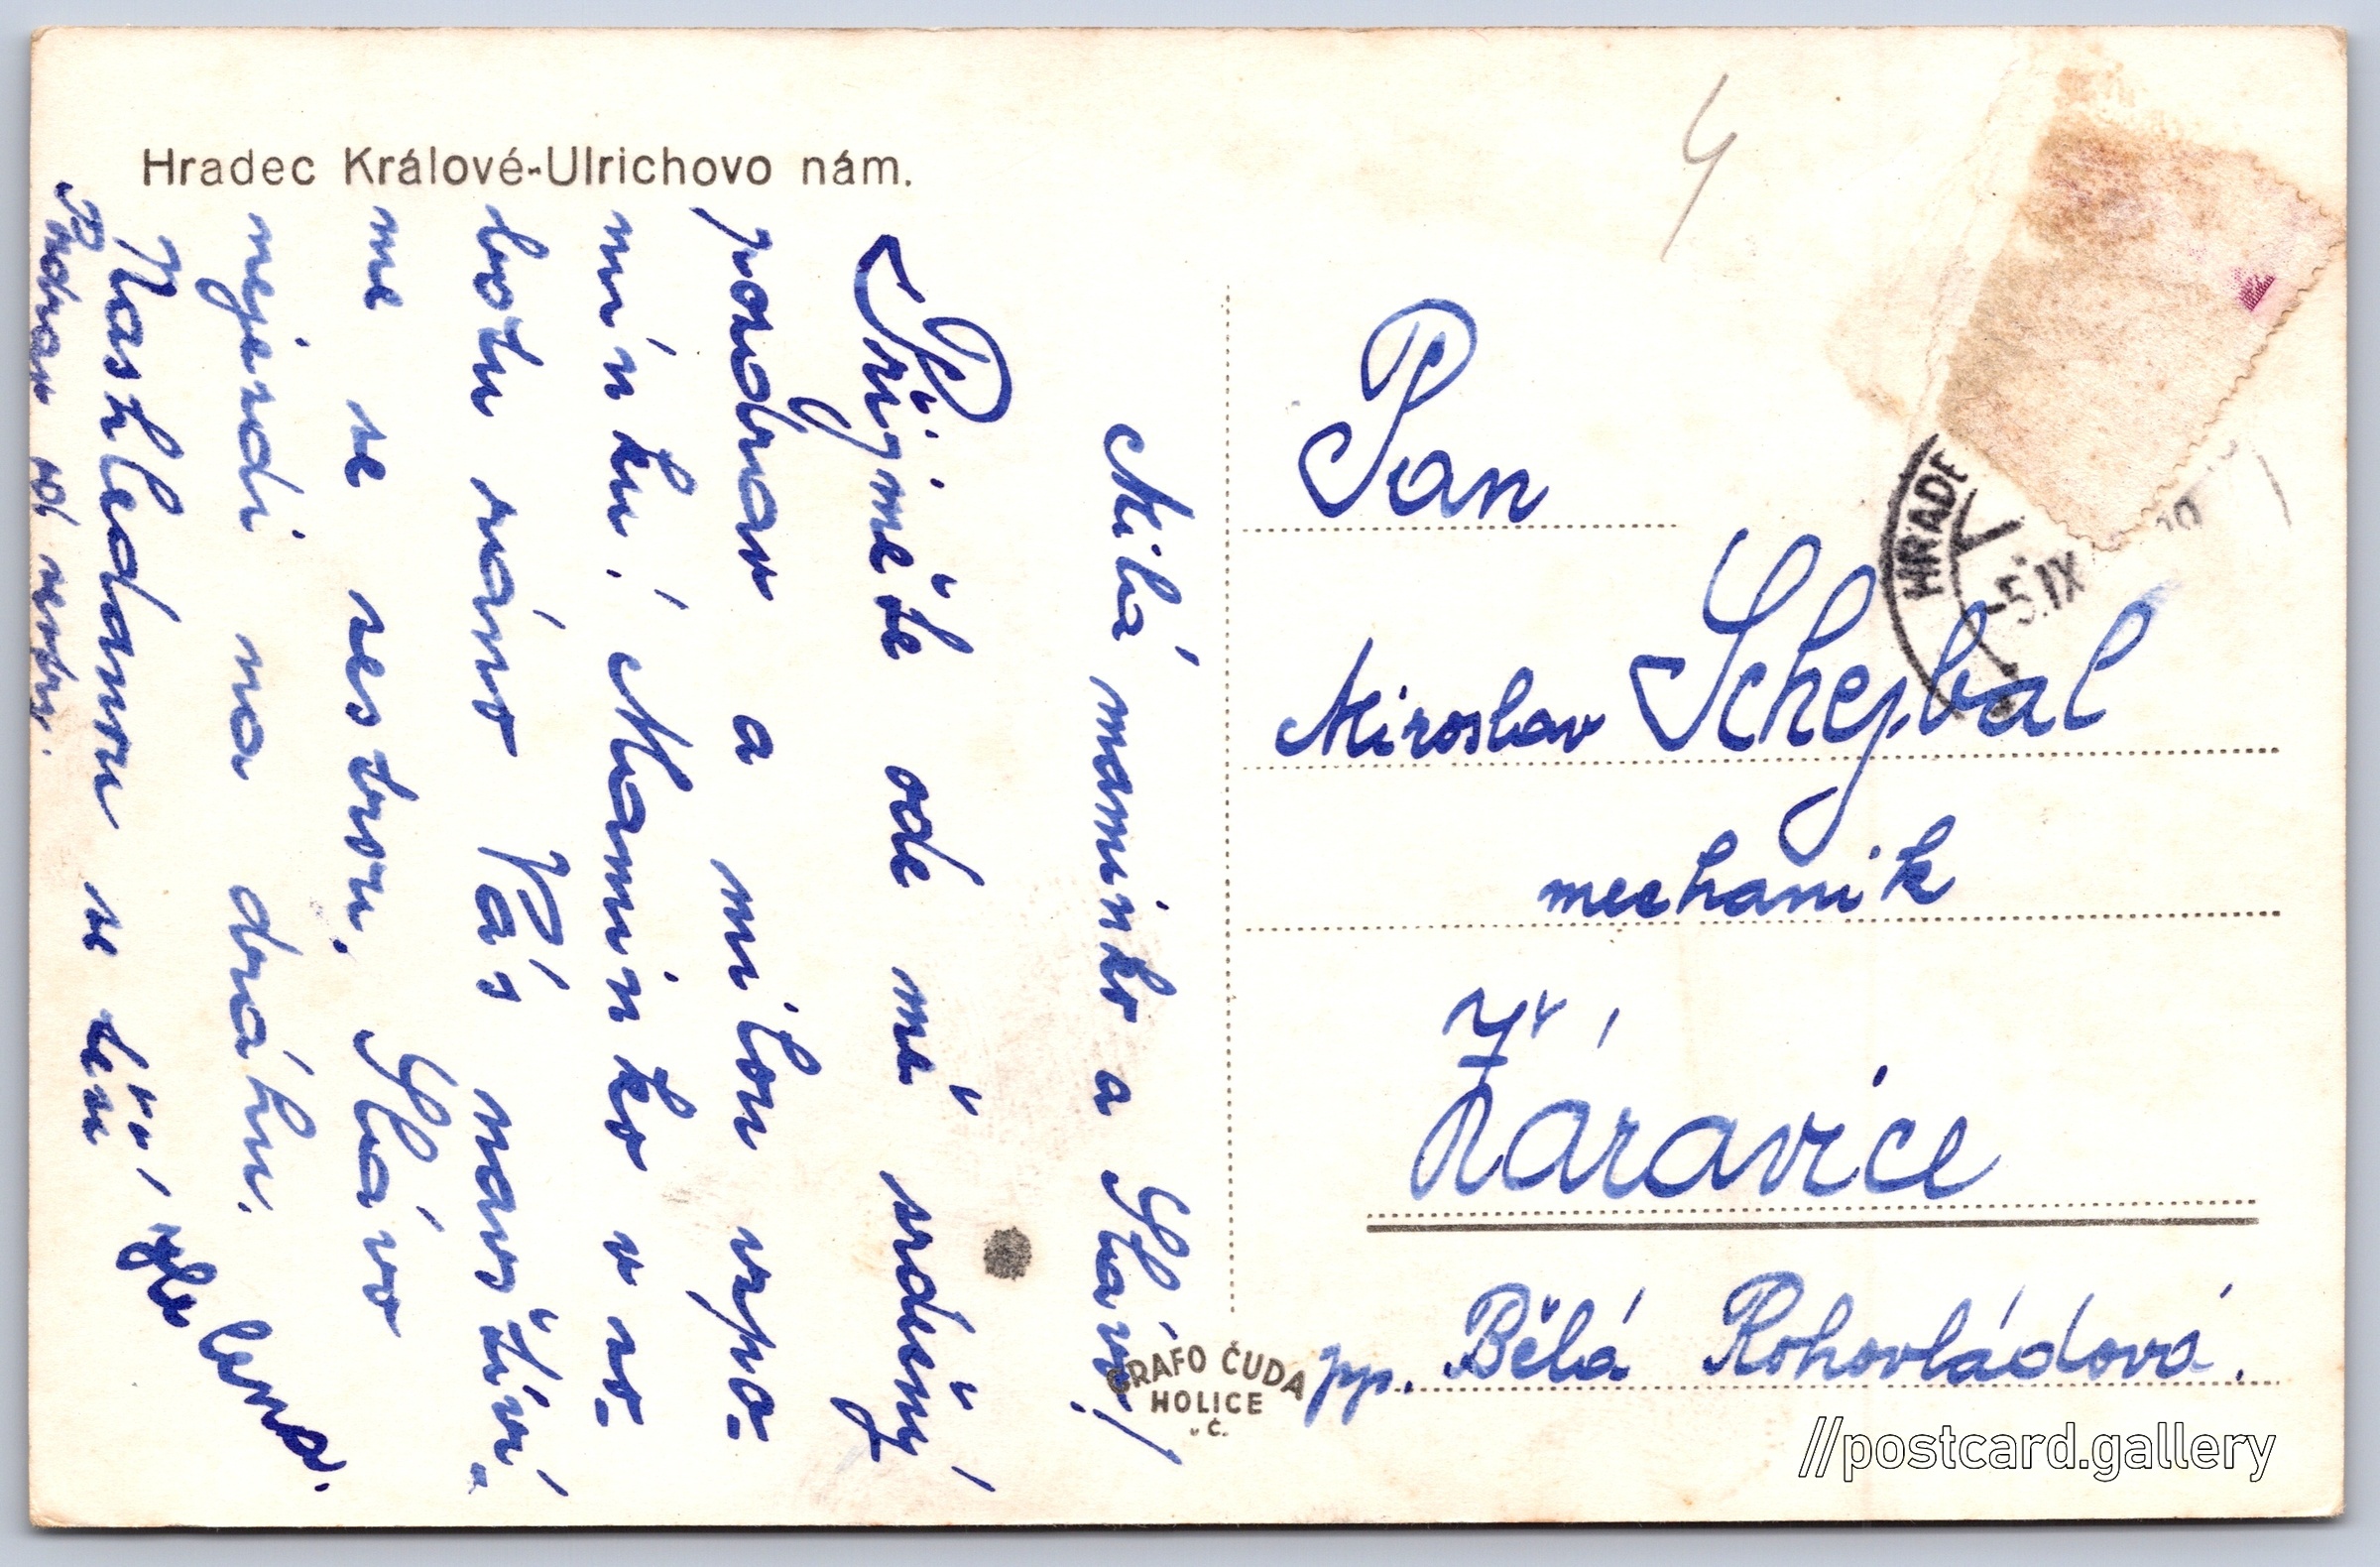 Hradec Králové-Ulrichovo nám.
4
Milá maminko a Slávo!
Přijměte ode mě srdečný
pozdrav a milou vzpo=
mínku! Maminko v so=
botu ráno Vás navští-
me se sestrou. Slávo
nejezdi na dráhu.
Nashledanou se těší
Lena.
Pozdrav od sestry.
Pan
Miroslav Schejbal
mechanik
Žáravice
pp. Bělá Rohovládová.
HRADE
-5.IX
GRAFO ČUDA
HOLICE
v Č.
//postcard.gallery